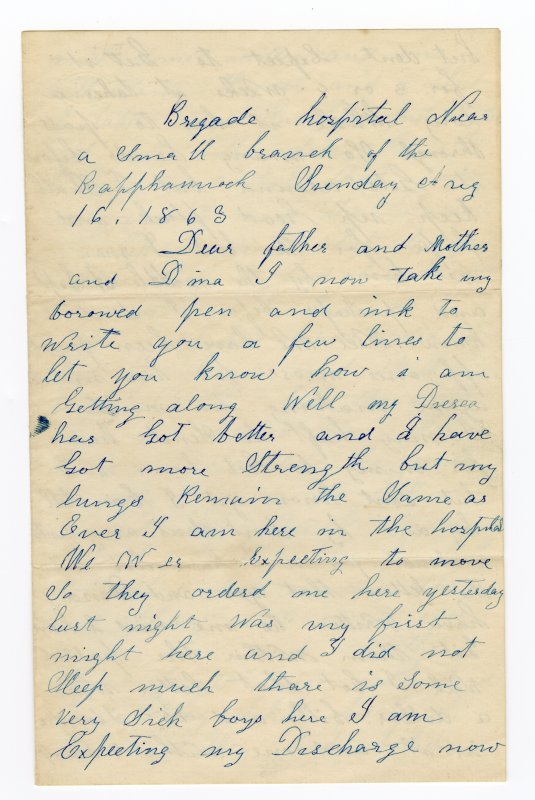 Brigade hospital Near
a Small branch of the
Rapphannock Sunday Aug
16. 1863
Dear father and Mother
and Dina I now take my
borowed pen and ink to
write you a few lines to
let you know how i am
Getting along Well my Dierea
has Got better and I have
Got more Strength but my
lungs Remain the Same as
Ever I am here in the hospital
We Wer Expecting to move
So they orderd me here yesterday
last night Was my first
night here and I did not
Sleep much thare is Some
very Sick boys here I am
Expecting my Discharge now